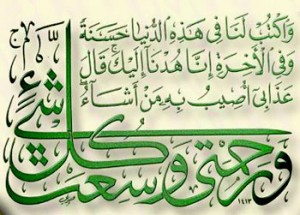 وَاكْتُبْ لَنَا فِي هَذِهِ الدُّنْيَا حَسَنَةً
وَفِي الْآخِرَةِ إِنَّا هُدْنَا إِلَيْكَ قَالَ
عَذَابِي أُصِيبُ بِهِ مَنْ أَشَاءُ
وَرَحْمَتِي وَسِعَتْ كُلَّ شَيْءٍ
١٤١٣